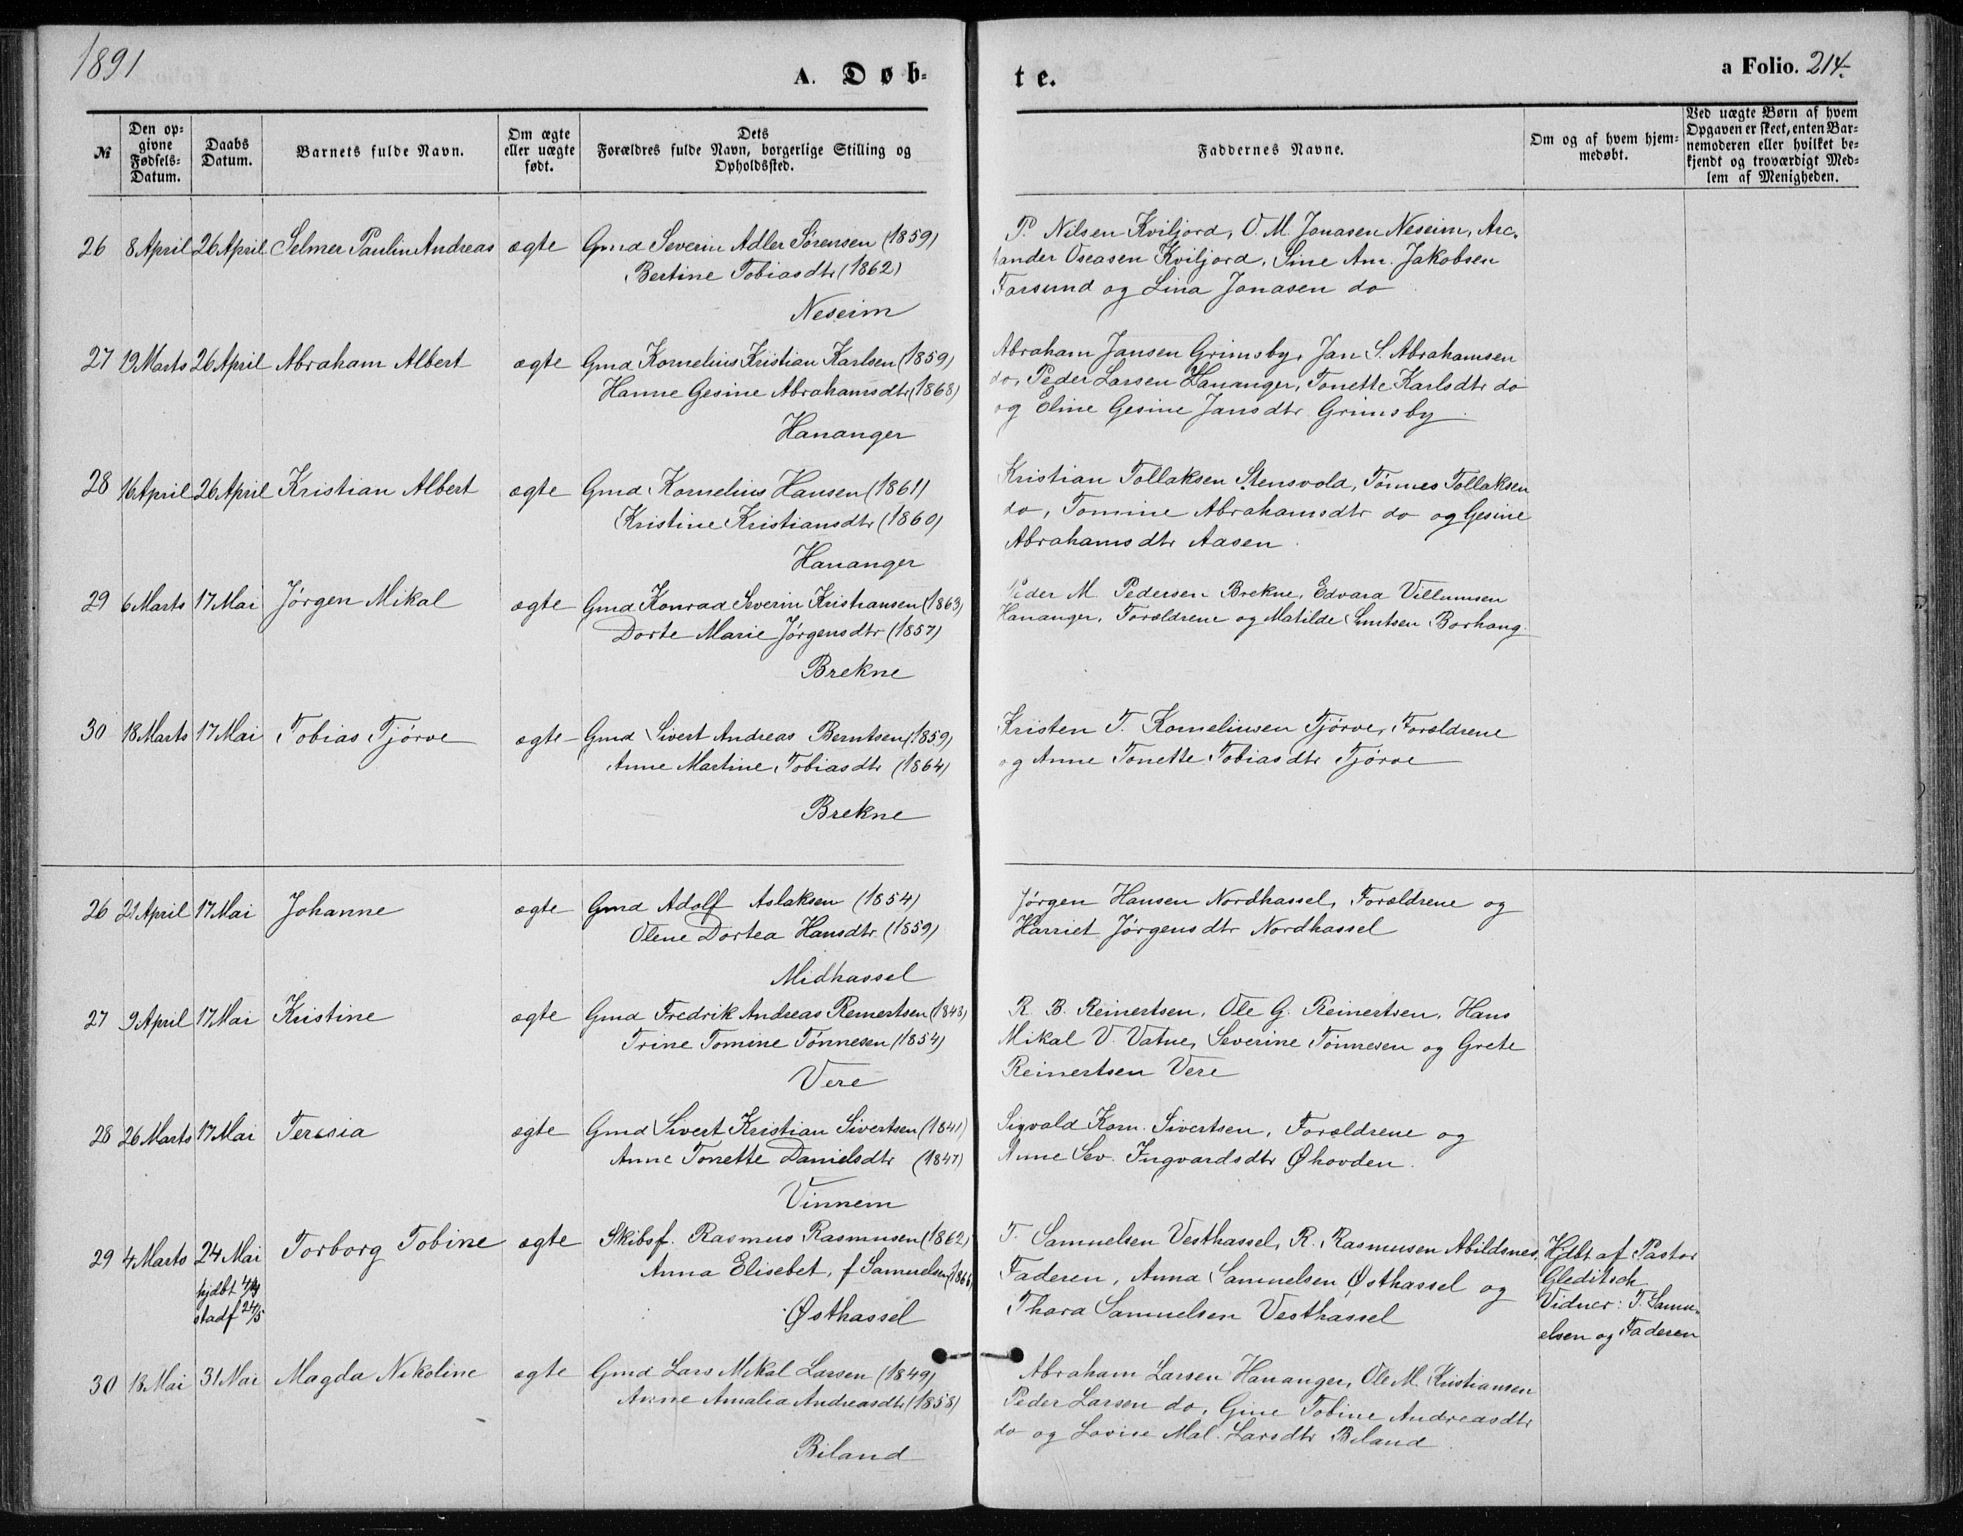 1891
A. Døb-
te.
a Folio. 214.
№
Den op-
givne
Fødsels-
Datum.
Daabs
Datum.
Barnets fulde Navn.
Om ægte
eller uægte
født.
Dets
Forældres fulde Navn, borgerlige Stilling og
Opholdssted.
Faddernes Navne.
Om og af hvem hjem-
medøbt.
Ved uægte Børn af hvem
Opgaven er skeet, enten Bar-
nemoderen eller hvilket be-
kjendt og troværdigt Med-
lem af Menigheden.
26 8 April 26 April Selmer Paulin Andreas ægte Gmd Severin Adler Sørensen (1859)
Bertine Tobiasdtr (1862)
Neseim
P. Nilsen Kviljord, O. M. Jonasen Neseim, Arc-
tander Oseasen Kviljord, Sine Am. Jakobsen
Farsund og Lina Jonasen do
27 19 Marts 26 April Abraham Albert ægte Gmd Kornelius Kristian Karlsen (1859)
Hanne Gesine Abrahamsdtr (1868)
Hananger
Abraham Jansen Grimsby, Jan S. Abrahamsen
do, Peder Larsen Hananger, Tonette Karlsdtr do
og Eline Gesine Jansdtr Grimsby
28 16 April 26 April Kristian Albert ægte Gmd Kornelius Hansen (1861)
Kristine Kristiansdtr (1860)
Hananger
Kristian Tollaksen Stensvold, Tønnes Tollaksen
do, Tomine Abrahamsdtr do og Gesine
Abrahamsdtr Aasen
29 6 Marts 17 Mai Jørgen Mikal ægte Gmd Konrad Severin Kristiansen (1863)
Dorte Marie Jørgensdtr (1857)
Brekne
Peder M Pedersen Brekne, Edvard Villumsen
Hananger, Forældrene og Matilde Borhaug
30 18 Marts 17 Mai Tobias Tjørve ægte Gmd Sivert Andreas Berntsen (1859)
Anne Martine Tobiasdtr (1864)
Brekne
Kristen T. Korneliusen Tjørve, Forældrene
og Anne Tonette Tobiasdtr Tjørve
26 21 April 17 Mai Johanne ægte Gmd Adolf Aslaksen (1854)
Olene Dortea Hansdtr (1859)
Midhassel
Jørgen Hansen Nordhassel, Forældrene og
Harriet Jørgensdtr Nordhassel
27 9 April 17 Mai Kristine ægte Gmd Fredrik Andreas Reinertsen (1843)
Trine Tomine Tønnesen (1854)
Vere
R. B. Reinertsen, Ole G. Reinertsen, Hans
Mikal V. Vatne, Severine Tønnesen og Grete
Reinertsen Vere
28 26 Marts 17 Mai Teresia ægte Gmd Sivert Kristian Sivertsen (1841)
Anne Tonette Danielsdtr (1847)
Vinnem
Sigvald Korn. Sivertsen, Forældrene og
Anne Sev. Ingvardsdtr Øhovden.
29 4 Marts 24 Mai Torborg Tobine ægte Skibsf. Rasmus Rasmusen (1862)
hjdbt 4/4
stadf 24/5
Anna Elisebet, f Samuelsen (1866)
Østhassel
T. Samuelsen Vesthassel, R. Rasmusen Abildsnes,
Faderen, Anna Samuelsen Østhassel og
Thora Samuelsen Vesthassel
Hjdbt af Pastor
Gleditsch
Vidner: T. Samu-
elsen og Faderen
30 13 Mai 31 Mai Magda Nikoline ægte Gmd Lars Mikal Larsen (1849)
Anne Amalia Andreasdtr (1858)
Biland
Abraham Larsen Hananger, Ole M. Kristiansen
Peder Larsen do, Gine Tobine Andreasdtr
do og Lovise Mal. Larsdtr Biland